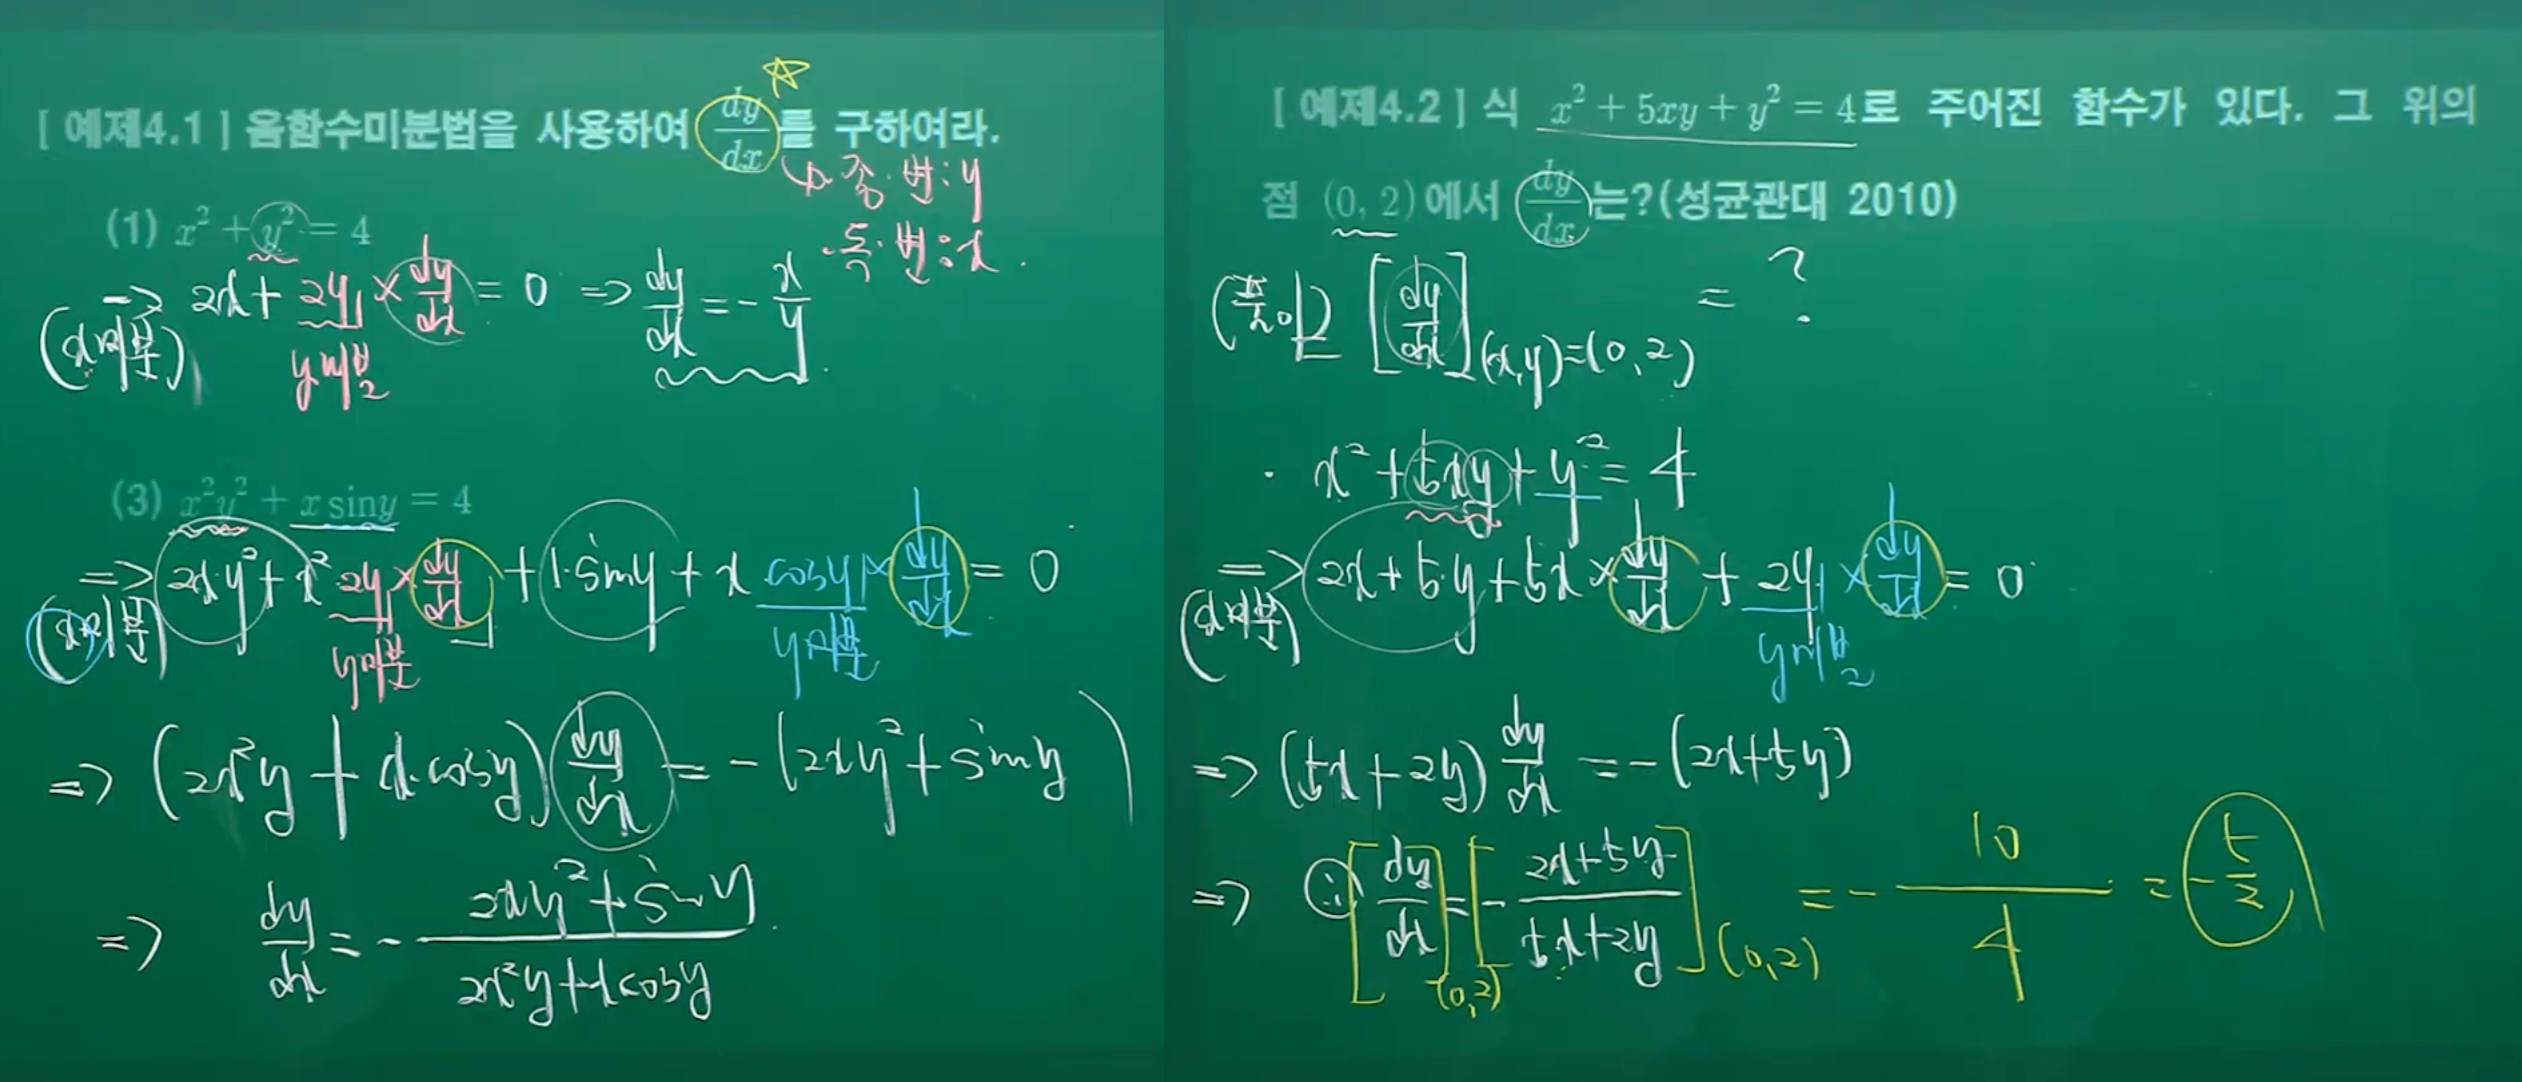 [ 예제4.1 ] 음함수미분법을 사용하여 dy/dx 를 구하여라.
↳ 종.변 : y
독.변 : x
(1) x² + y² = 4
⇒ 2x + 2y × dy/dx = 0 ⇒ dy/dx = - x/y
(x미분)
y미분
(3) x²y² + x siny = 4
⇒ 2x·y² + x² 2y × dy/dx + 1·siny + x cosy × dy/dx = 0
(x미분)
y미분
y미분
⇒ (2x²y + x·cosy) dy/dx = -(2xy² + siny)
⇒ dy/dx = - (2xy² + siny)/(2x²y + xcosy)
[ 예제4.2 ] 식 x² + 5xy + y² = 4로 주어진 함수가 있다. 그 위의
점 (0, 2)에서 dy/dx 는?(성균관대 2010)
(풀이) [dy/dx](x,y)=(0,2) = ?
· x² + 5xy + y² = 4
⇒ 2x + 5·y + 5x × dy/dx + 2y × dy/dx = 0
(x미분)
y미분
⇒ (5x + 2y) dy/dx = -(2x + 5y)
⇒ ∴ [dy/dx](0,2) = [- (2x+5y)/(5x+2y)](0,2) = - 10/4 = - 5/2